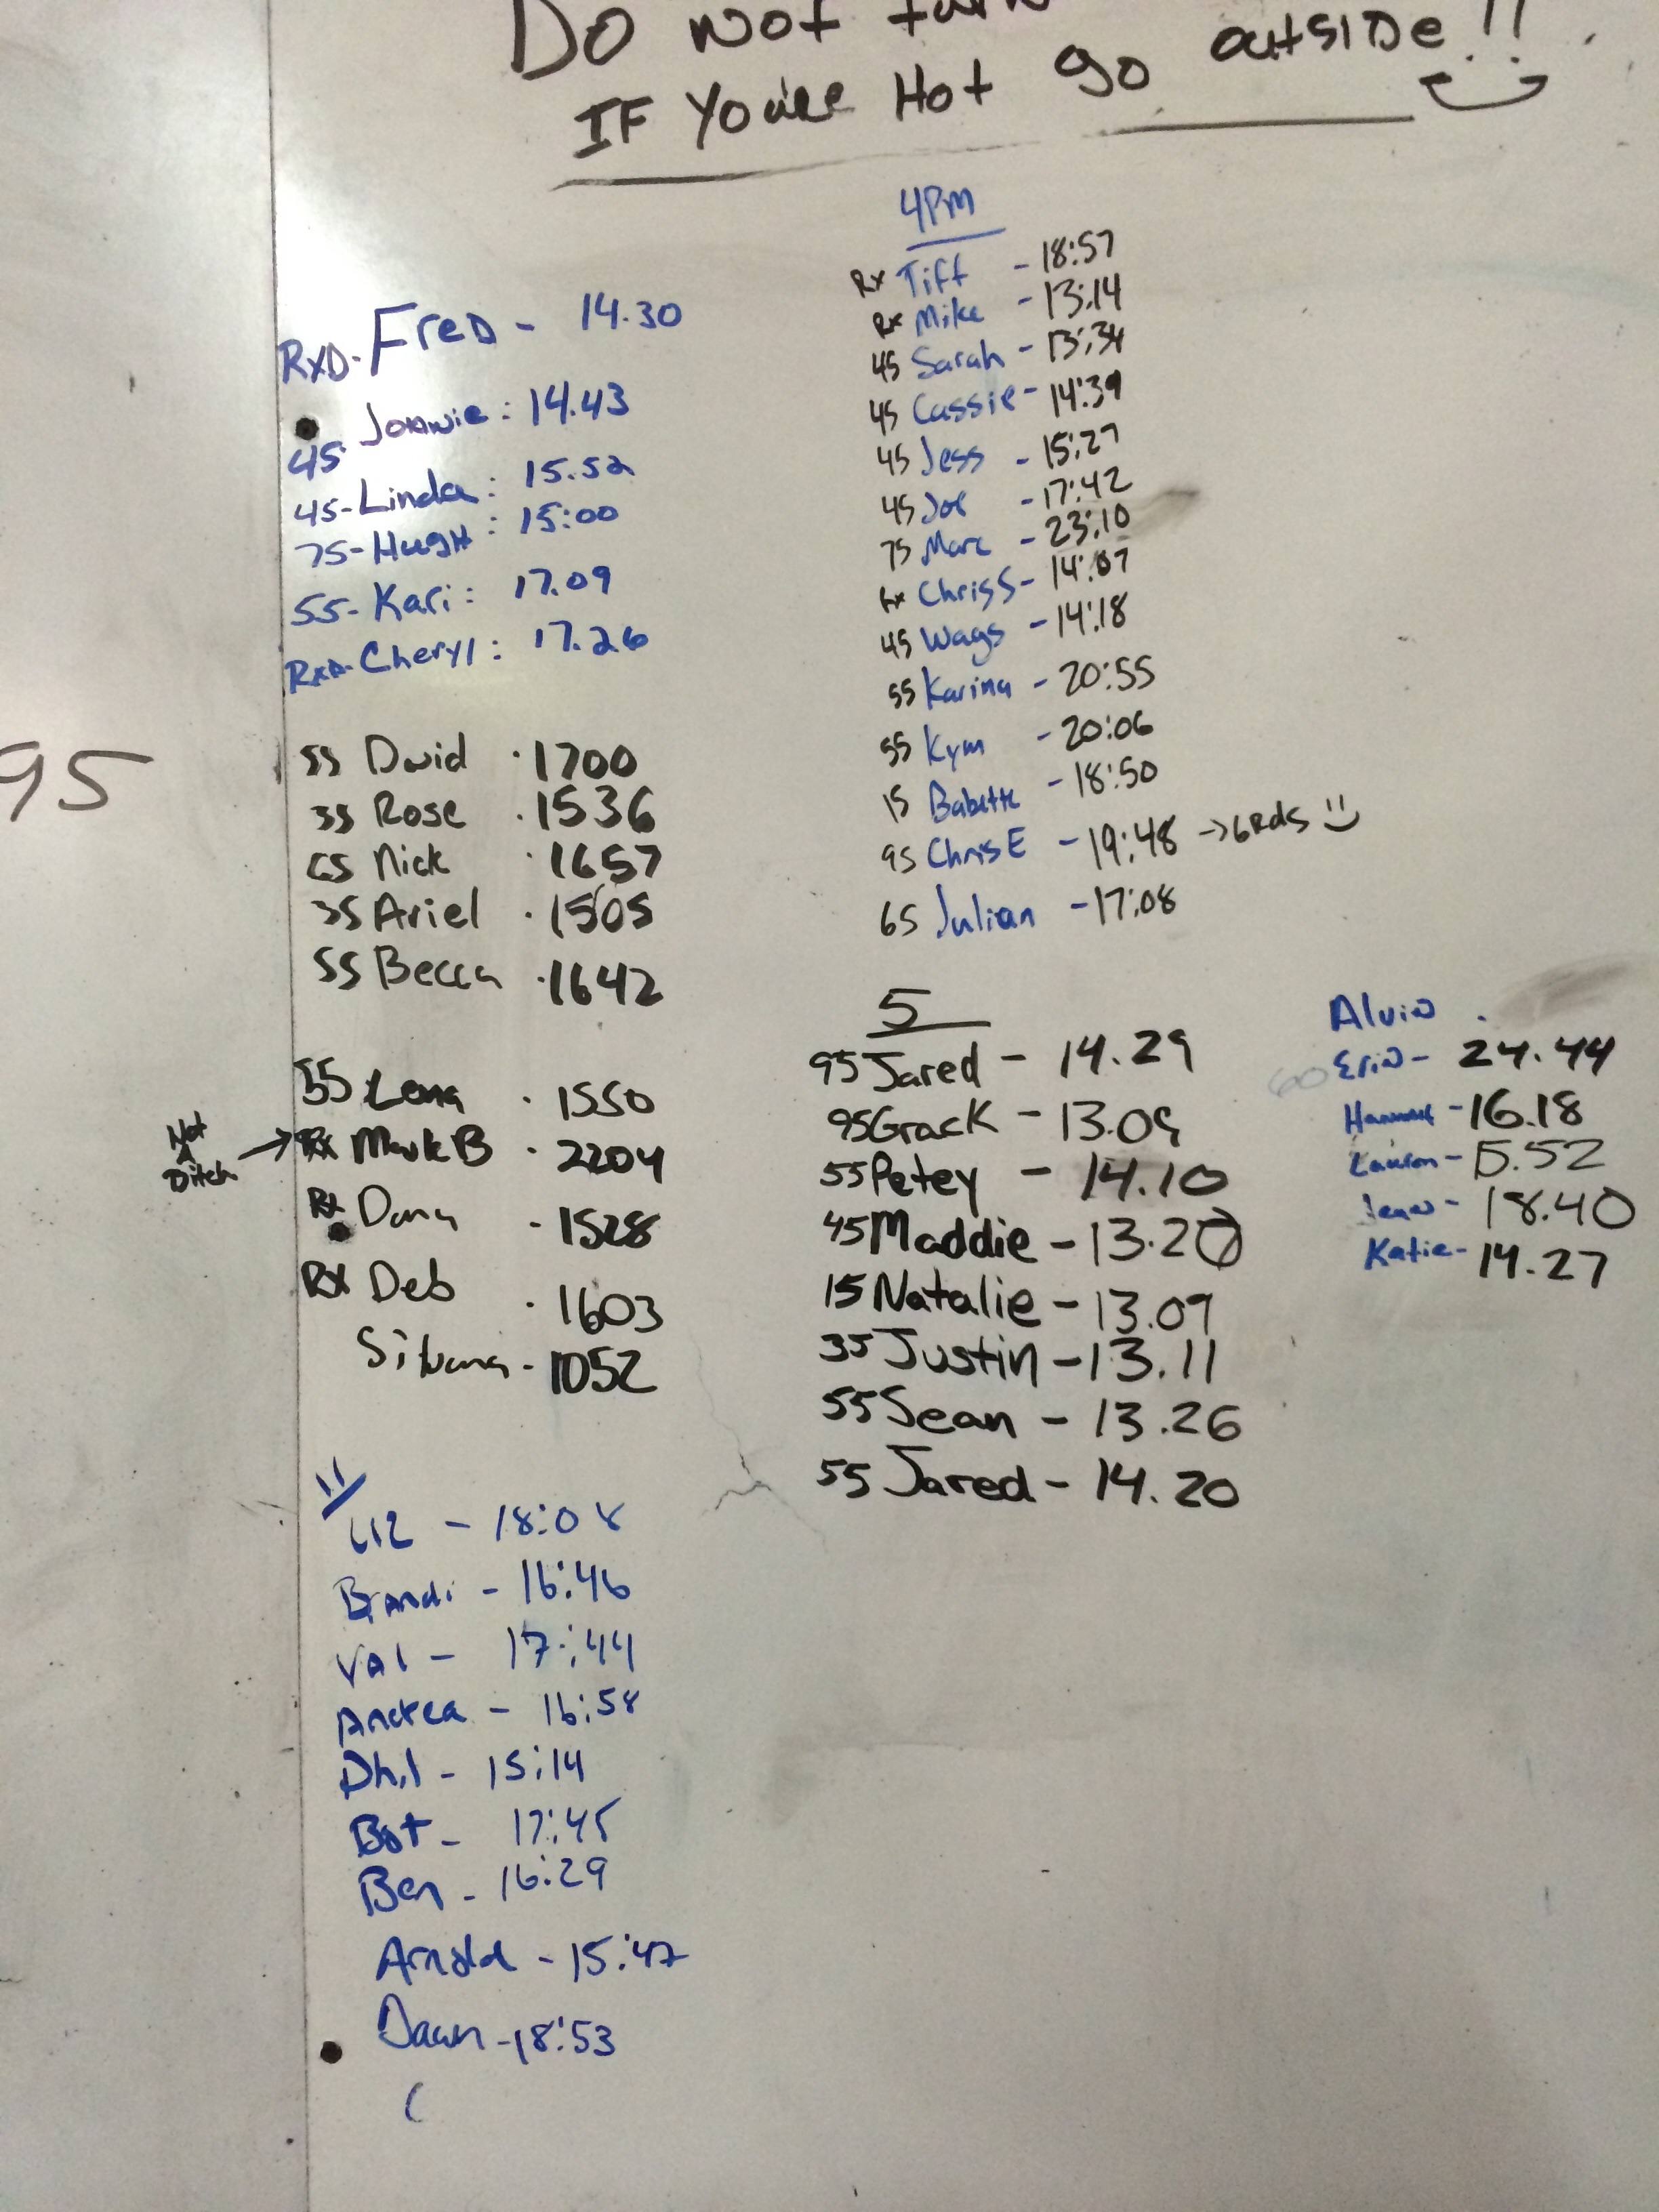 Do Not turn
IF You're Hot go outside!!
RxD- Fred - 14.30
45 Joannie: 14.43
45-Linda: 15.52
75-Hugh: 15:00
55-Kari: 17.09
RxD-Cheryl: 17.26
95
55 David · 1700
35 Rose · 1536
65 Nick · 1657
35 Ariel · 1505
55 Becca · 1642
55 Lena · 1550
Not A Ditch → Rx Mark B · 2204
Rx Dana - 1528
Rx Deb · 1603
Silvana - 1052
11
Liz - 18:08
Brandi - 16:46
Val - 17:44
Andrea - 16:58
Phil - 15:14
17:45
Ben - 16:29
Arnold - 15:47
Dawn - 18:53
4PM
Rx Tiff - 18:57
Rx Mike - 13:14
45 Sarah - 13:34
45 Cassie - 14:39
45 Jess - 15:27
45 Joe - 17:42
75 Marc - 23:10
Rx Chris S - 14:07
45 Wags - 14:18
55 Karina - 20:55
55 Kym - 20:06
15 Babette - 18:50
95 Chris E - 19:48 → 6 Rds
65 Julian - 17:08
5
95 Jared - 14.29
95 Grack - 13.09
55 Petey - 14.10
45 Maddie - 13.20
15 Natalie - 13.09
35 Justin - 13.11
55 Sean - 13.26
55 Jared - 14.20
Alvin .
60 Erin - 24.44
Hannah - 16.18
- 5.52
Jenn - 18.40
Katie - 14.27